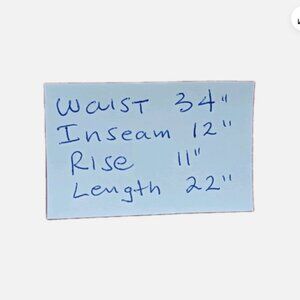 Waist 34"
Inseam 12"
Rise 11"
Length 22"